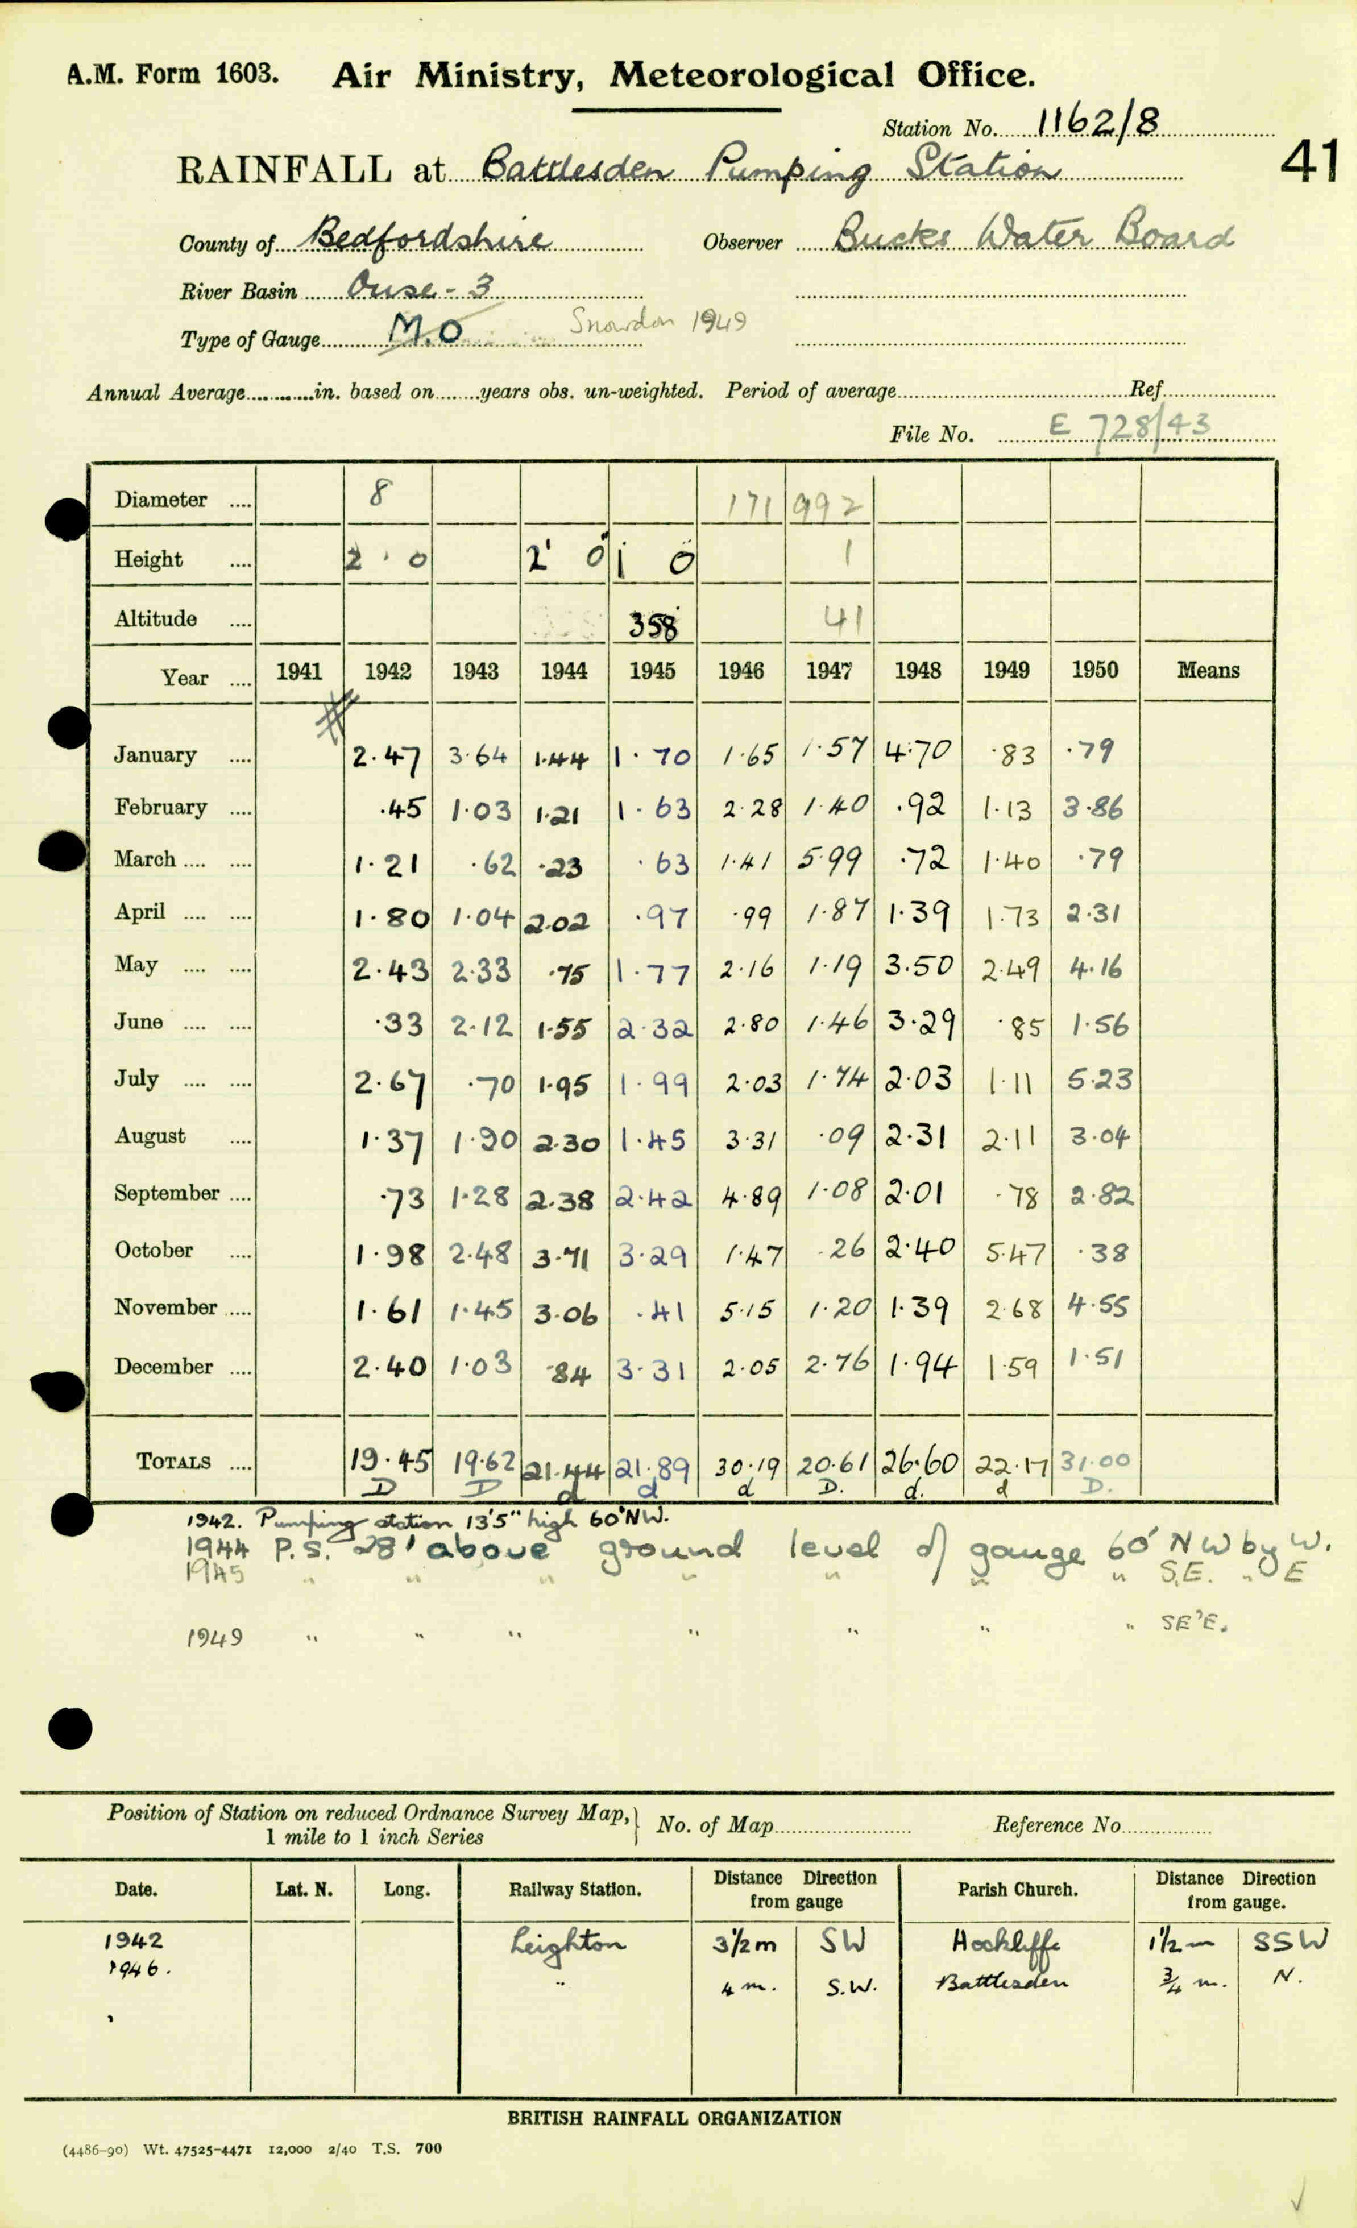 A.M. Form 1603. Air Ministry, Meteorological Office.
Station No. 1162/8
41
RAINFALL at Battlesden Pumping Station
County of Bedfordshire Observer Bucks Water Board
River Basin Ouse - 3
Type of Gauge M.O Snowdon 1949
Annual Average in. based on years obs. un-weighted. Period of average Ref.
File No. E 728/43
Diameter 8 171 992
Height 2' 0 2' 0" 1 0 1
Altitude 358 41
Year 1941 1942 1943 1944 1945 1946 1947 1948 1949 1950 Means
January 2.47 3.64 1.44 1.70 1.65 1.57 4.70 .83 .79
February .45 1.03 1.21 1.63 2.28 1.40 .92 1.13 3.86
March 1.21 .62 .23 .63 1.41 5.99 .72 1.40 .79
April 1.80 1.04 2.02 .97 .99 1.87 1.39 1.73 2.31
May 2.43 2.33 .75 1.77 2.16 1.19 3.50 2.49 4.16
June .33 2.12 1.55 2.32 2.80 1.46 3.29 .85 1.56
July 2.67 .70 1.95 1.99 2.03 1.74 2.03 1.11 5.23
August 1.37 1.90 2.30 1.45 3.31 .09 2.31 2.11 3.04
September .73 1.28 2.38 2.42 4.89 1.08 2.01 .78 2.82
October 1.98 2.48 3.71 3.29 1.47 .26 2.40 5.47 .38
November 1.61 1.45 3.06 .41 5.15 1.20 1.39 2.68 4.55
December 2.40 1.03 .84 3.31 2.05 2.76 1.94 1.59 1.51
TOTALS 19.45 19.62 21.44 21.89 30.19 20.61 26.60 22.17 31.00
D D d d d D. d. d D.
1942. Pumping station 13'5" high 60'NW.
1944 P.S. 28' above ground level of gauge 60' NW by W.
1945 " " " " " " " S.E. " E
1949 " " " " " " " SE'E.
Position of Station on reduced Ordnance Survey Map, 1 mile to 1 inch Series No. of Map Reference No.
Date. Lat. N. Long. Railway Station. Distance Direction from gauge Parish Church. Distance Direction from gauge.
1942 Leighton 3½m SW Hockliffe 1½m SSW
1946. " 4 m. S.W. Battlesden ¾ m. N.
BRITISH RAINFALL ORGANIZATION
(4486-90) Wt. 47525-4471 12,000 2/40 T.S. 700